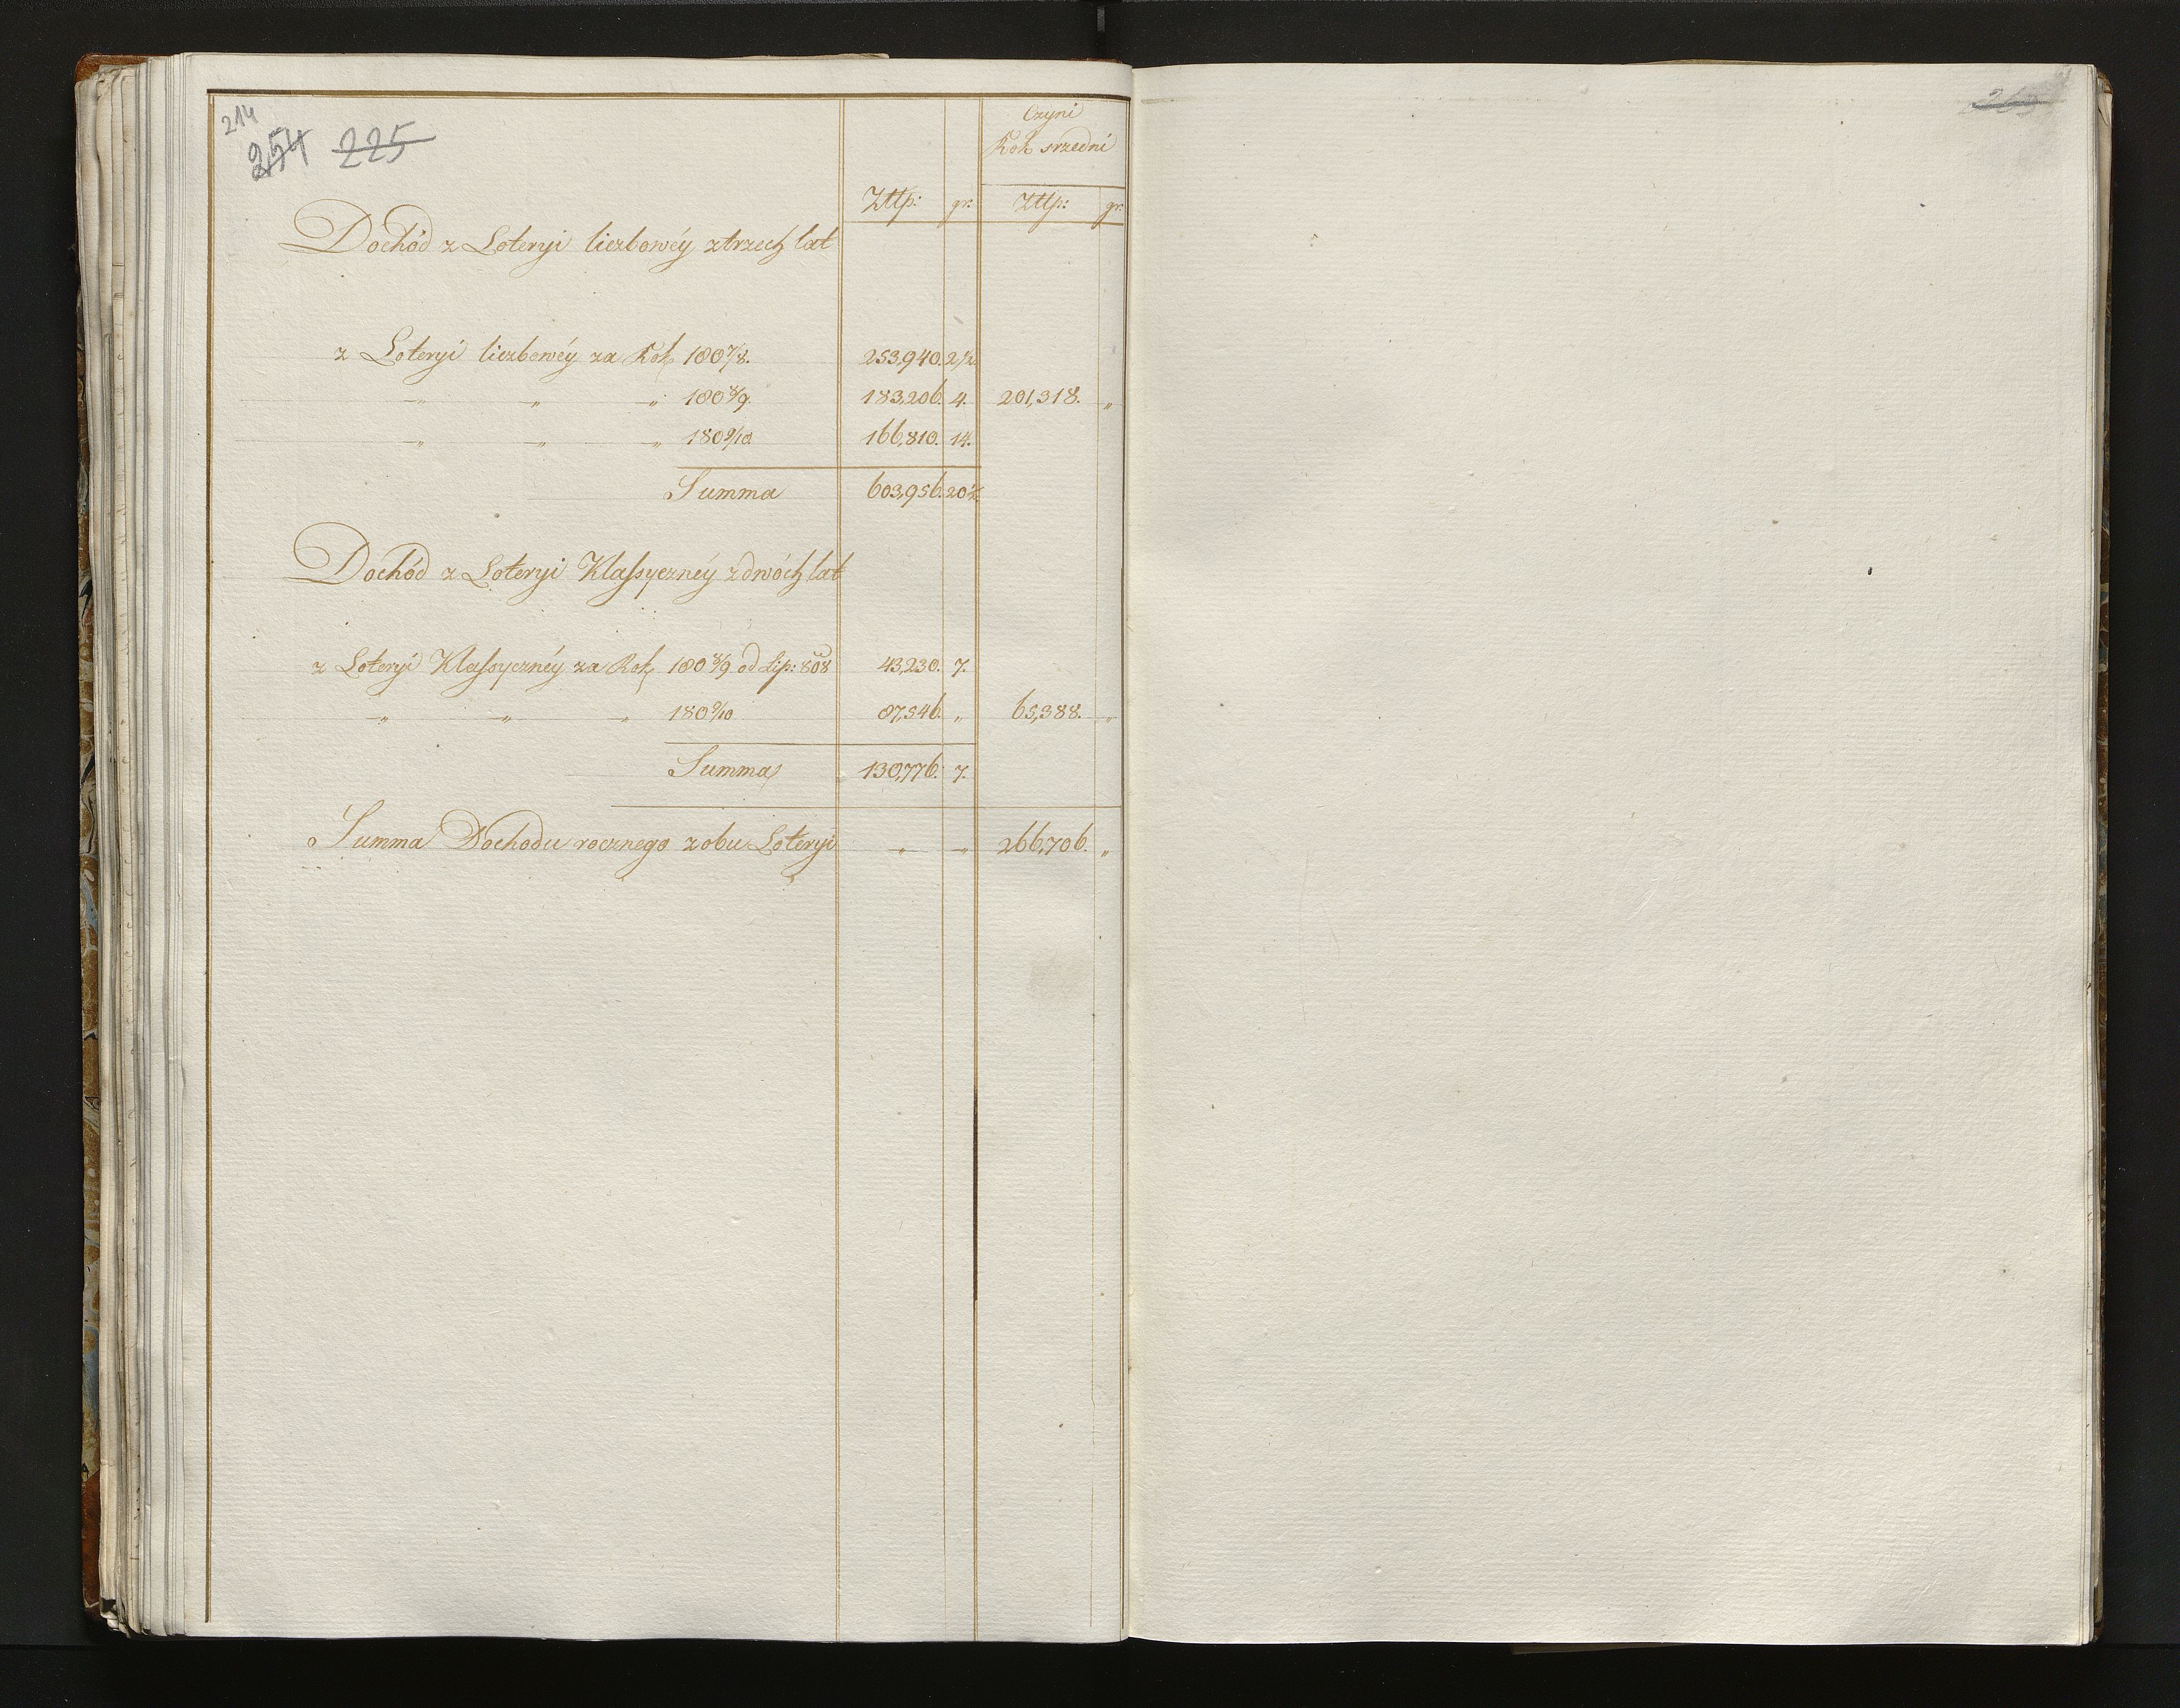 214
254 225
Czyni
Rok srzedni
Ztlp: gr: Ztlp: gr:
Dochód z Loteryi liczbowéy z trzech lat
z Loteryi liczbowéy za Rok 1807/8. 253,940. 2 1/2
„ „ „ 1808/9. 183,206. 4. 201,318. „
„ „ „ 1809/10 166,810. 14.
Summa 603,956. 20 1/2
Dochód z Loteryi Klassycznéy z dwóch lat
z Loteryi Klassycznéy za Rok 1808/9 od Lip: 808 43,230. 7.
„ „ „ 1809/10 87,546. „ 65,388. „
Summa 130,776. 7.
Summa Dochodu rocznego z obu Loteryi „ „ 266,706. „